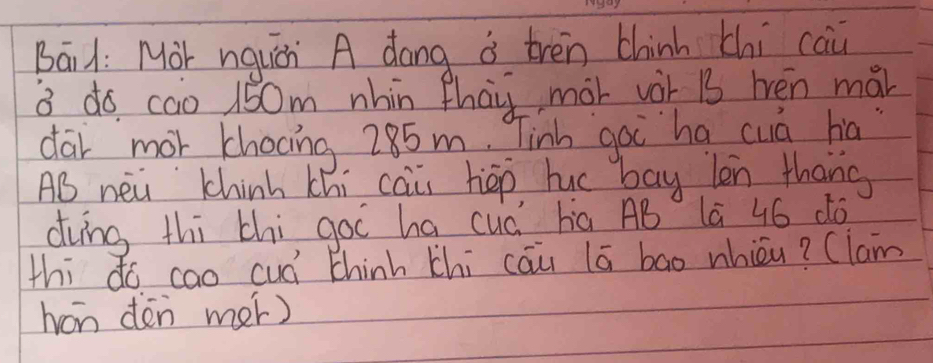 Bài 1: Một người A đang ở trên khinh khí cầu
ở độ cao 150m nhìn thấy một vật B trên mặt
đất một khoảng 285m. Tính góc hạ của tia
AB nếu khinh khí cầu tiếp tục bay lên thẳng
đứng thì khi góc hạ của tia AB là 46 độ
thì độ cao của khinh khí cầu là bao nhiêu? (làm
tròn đến mét)